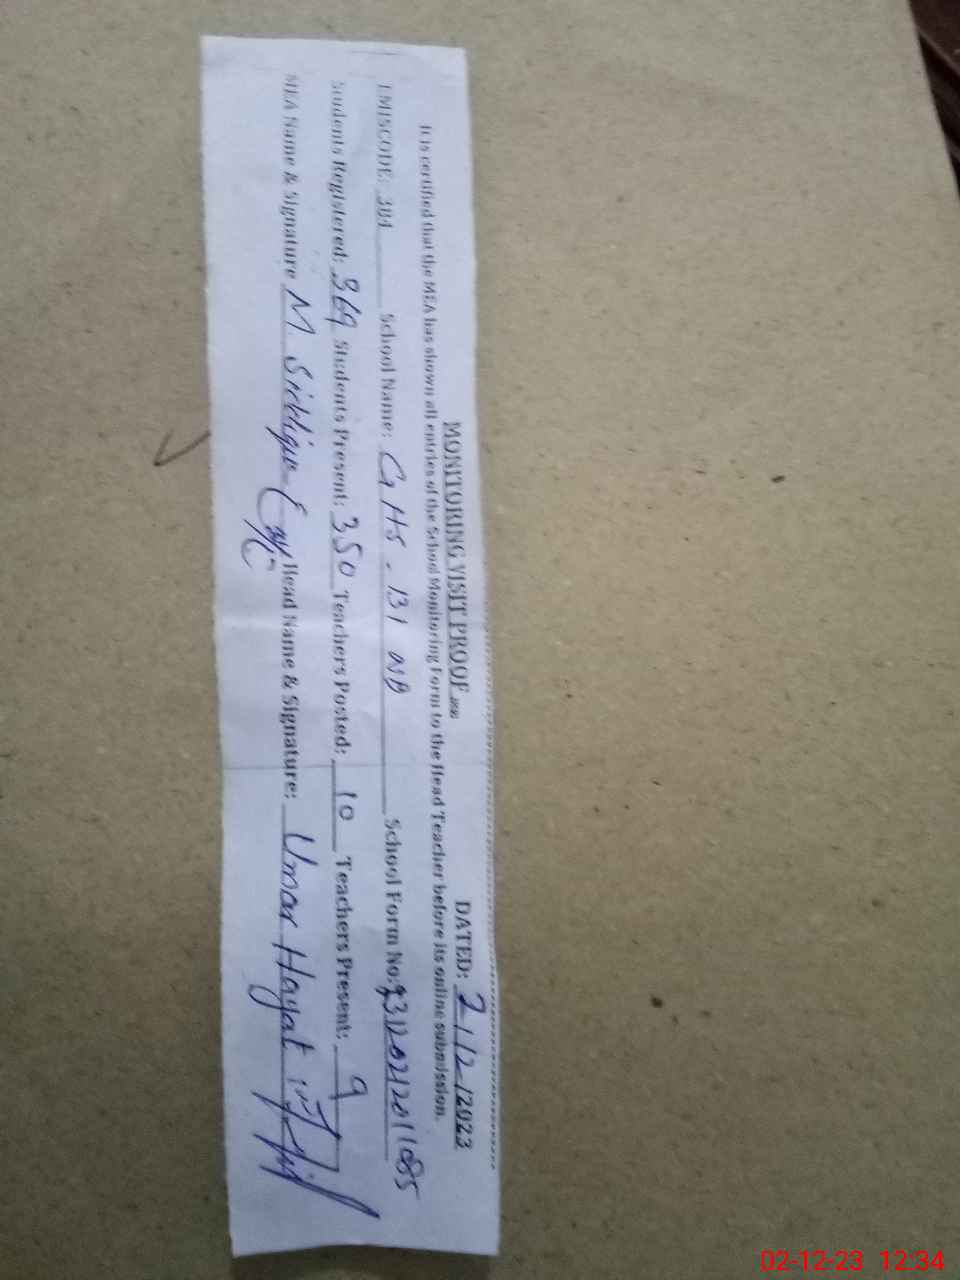 MONITORING VISIT PROOF DATED: 2/12/2023
It is certified that the MEA has shown all entries of the School Monitoring Form to the Head Teacher before its online submission.
EMISCODE: 384 School Name: GHS. 131 NB School Form No:
Students Registered: 369 Students Present: 350 Teachers Posted: 10 Teachers Present: 9
MEA Name & Signature M. Siddique Head Name & Signature: Umar Hayat
02-12-23 12:34